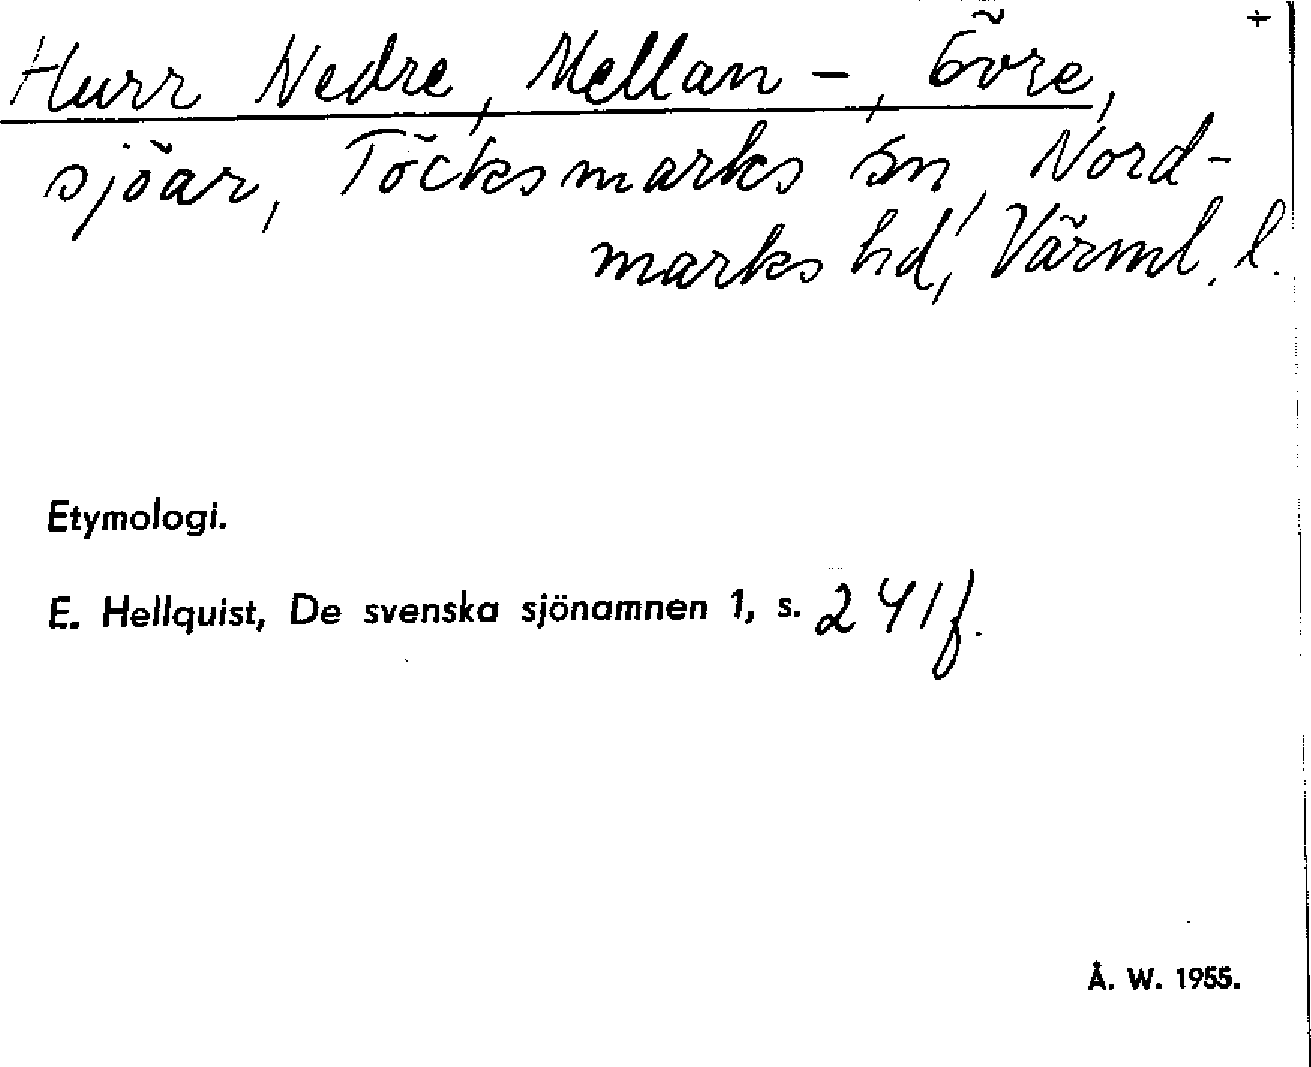 +
Hurr Nedre, Mellan -, Övre,
sjöar, Töcksmarks sn, Nord-
marks hd, Värml. l.
Etymologi.
E. Hellquist, De svenska sjönamnen 1, s. 241 f.
Å. W. 1955.